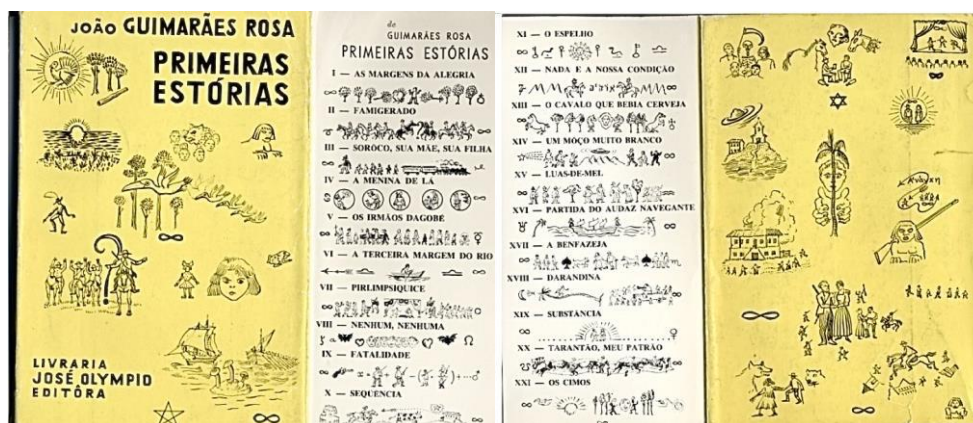 JOÃO GUIMARÃES ROSA
PRIMEIRAS
ESTÓRIAS
LIVRARIA
JOSÉ OLYMPIO
EDITÔRA
de
GUIMARÃES ROSA
PRIMEIRAS ESTÓRIAS
I — AS MARGENS DA ALEGRIA
II — FAMIGERADO
III — SORÔCO, SUA MÃE, SUA FILHA
IV — A MENINA DE LÁ
V — OS IRMÃOS DAGOBÉ
VI — A TERCEIRA MARGEM DO RIO
VII — PIRLIMPSIQUICE
VIII — NENHUM, NENHUMA
IX — FATALIDADE
X — SEQÜÊNCIA
XI — O ESPELHO
XII — NADA E A NOSSA CONDIÇÃO
XIII — O CAVALO QUE BEBIA CERVEJA
XIV — UM MOÇO MUITO BRANCO
XV — LUAS-DE-MEL
XVI — PARTIDA DO AUDAZ NAVEGANTE
XVII — A BENFAZEJA
XVIII — DARANDINA
XIX — SUBSTÂNCIA
XX — TARANTÃO, MEU PATRÃO
XXI — OS CIMOS